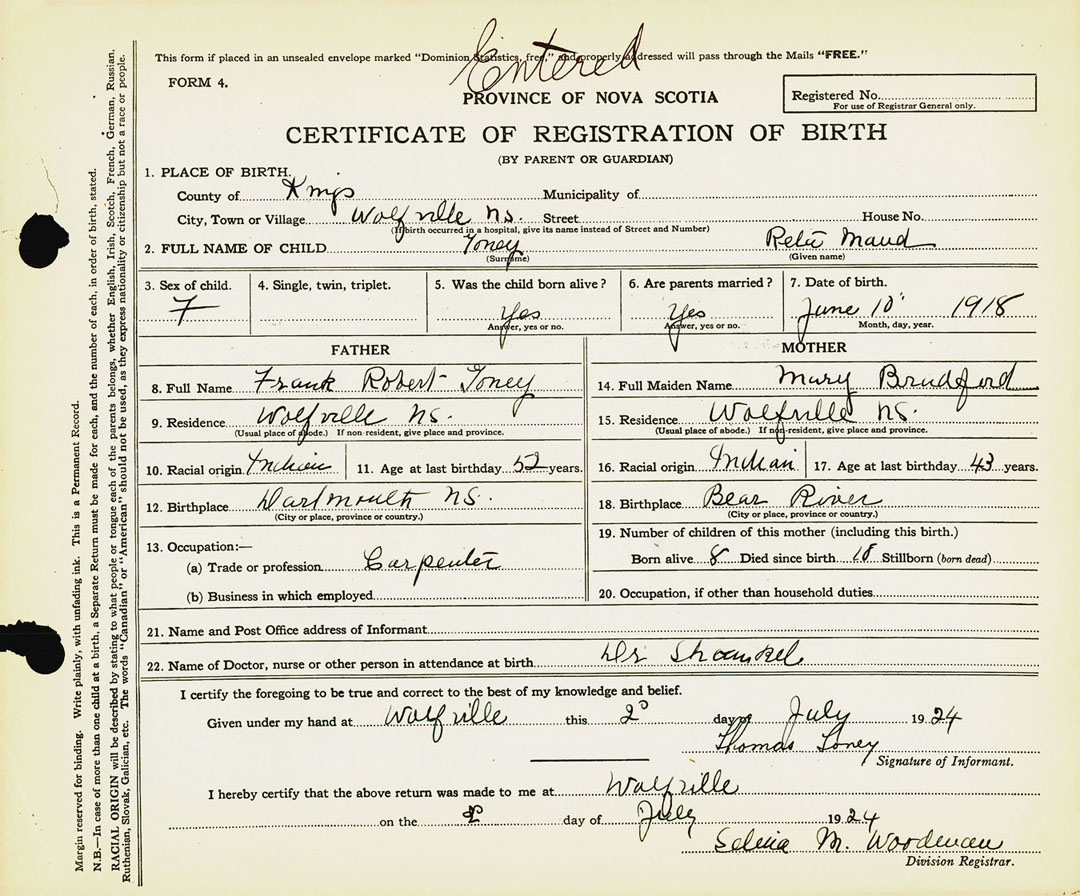 Entered
This form if placed in an unsealed envelope marked "Dominion Statistics, free," and properly addressed will pass through the Mails "FREE."
FORM 4.
PROVINCE OF NOVA SCOTIA
Registered No.
For use of Registrar General only.
CERTIFICATE OF REGISTRATION OF BIRTH
(BY PARENT OR GUARDIAN)
1. PLACE OF BIRTH.
County of Kings Municipality of
City, Town or Village Wolfville N.S. Street House No.
(If birth occurred in a hospital, give its name instead of Street and Number)
2. FULL NAME OF CHILD Toney Maud
(Surname) (Given name)
3. Sex of child. 4. Single, twin, triplet. 5. Was the child born alive? 6. Are parents married? 7. Date of birth.
F Yes Yes June 10 1918
Answer, yes or no. Answer, yes or no. Month, day, year.
FATHER
8. Full Name Frank Robert Toney
9. Residence Wolfville N.S.
(Usual place of abode.) If non-resident, give place and province.
10. Racial origin Indian 11. Age at last birthday 52 years.
12. Birthplace Dartmouth N.S.
(City or place, province or country.)
13. Occupation:—
(a) Trade or profession Carpenter
(b) Business in which employed
MOTHER
14. Full Maiden Name Mary Bradford
15. Residence Wolfville N.S.
(Usual place of abode.) If non-resident, give place and province.
16. Racial origin Indian 17. Age at last birthday 43 years.
18. Birthplace Bear River
(City or place, province or country.)
19. Number of children of this mother (including this birth.)
Born alive 8 Died since birth Stillborn (born dead)
20. Occupation, if other than household duties
21. Name and Post Office address of Informant
22. Name of Doctor, nurse or other person in attendance at birth Dr
I certify the foregoing to be true and correct to the best of my knowledge and belief.
Given under my hand at Wolfville this 2 day of July 1924
Thomas Toney
Signature of Informant.
I hereby certify that the above return was made to me at Wolfville
on the day of July 1924
M. Woodman
Division Registrar.
Margin reserved for binding. Write plainly, with unfading ink. This is a Permanent Record.
N.B.—In case of more than one child at a birth, a Separate Return must be made for each, and the number of each, in order of birth, stated.
RACIAL ORIGIN will be described by stating to what people or tongue each of the parents belongs, whether English, Irish, Scotch, French, German, Russian,
Ruthenian, Slovak, Galician, etc. The words "Canadian" or "American" should not be used, as they express nationality or citizenship but not a race or people.